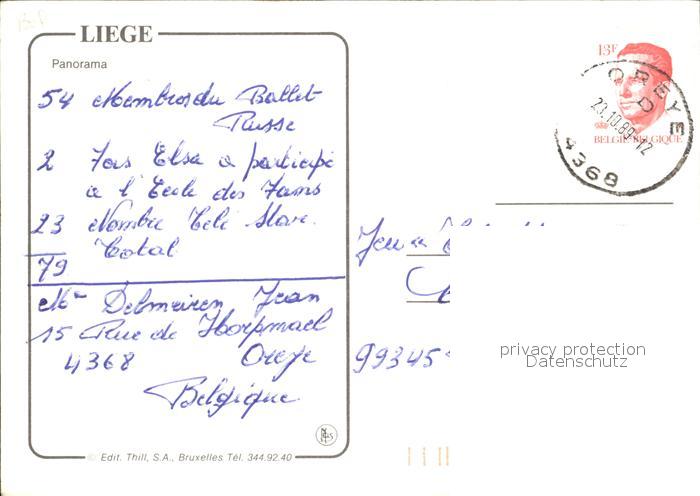 LIEGE
Panorama
54 Membres du Ballet
Russe
2 Fois Elsa a participé
à l'Ecole des Fans
23 Nombre Télé Star.
Total
79
Mr Delmeiren Jean
15 Rue de Horpmael
4368 Oreye
Belgique
Edit. Thill, S.A., Bruxelles Tél. 344.92.40
13F
OREYE
23.10.89-12
4368
BELGIË-BELGIQUE
Jeu
99345
privacy protection
Datenschutz